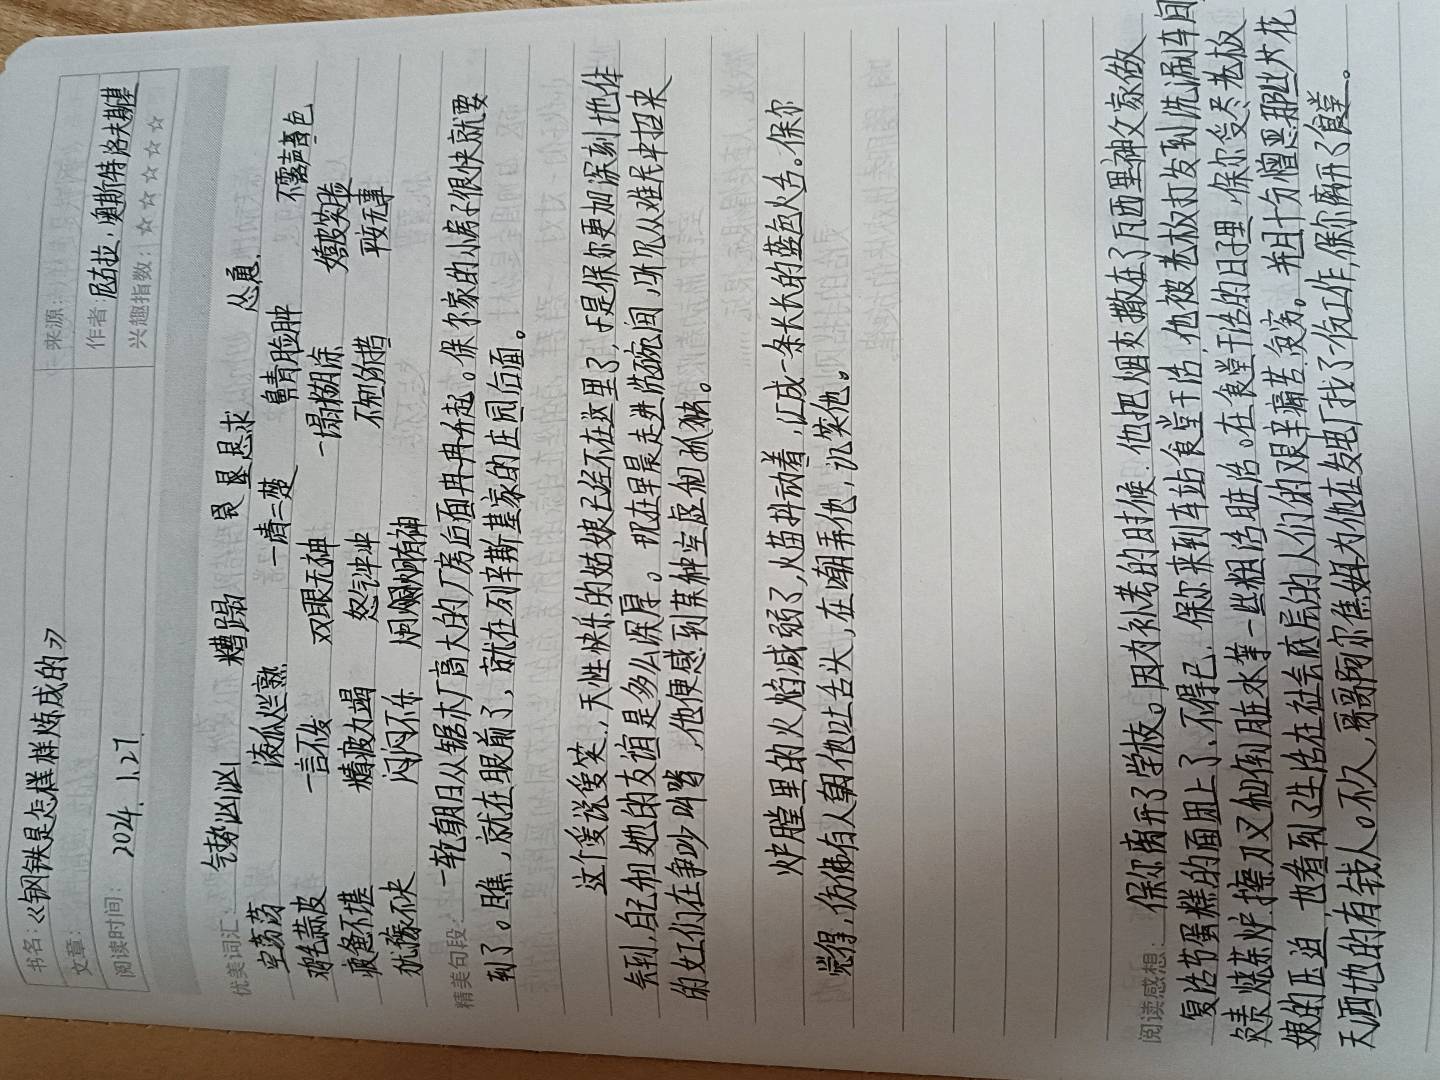 书名：《钢铁是怎样炼成的》 来源：
文章： 作者：尼古拉·奥斯特洛夫斯基
阅读时间： 2024.1.27. 兴趣指数：☆☆☆☆☆
优美词汇： 气势凶凶 糟蹋 畏 恳求 怂恿
空荡荡 滚瓜烂熟 一清二楚 鼻青脸肿 不露声色
鸡毛蒜皮 一言不发 双眼无神 一塌糊涂 嬉皮笑脸
疲惫不堪 精疲力竭 怒气冲冲 不知所措 平安无事
犹豫不决 闷闷不乐 炯炯有神
精美句段： 一轮朝日从锯木厂高大的厂房后面冉冉升起。保尔家的小房子很快就要
到了。瞧，就在眼前了，就在列辛斯基家的庄园后面。
这个爱说爱笑，天性快乐的姑娘已经不在这里了于是保尔更加深刻地体
会到，自己和她的友谊是多么深厚。现在早晨走进洗碗间，听见从难民中招来
的女工们在争吵叫骂，他便感到某种空虚和孤独。
炉膛里的火焰减弱了，火苗抖动着，汇成一条长长的蓝色火舌。保尔
觉得，仿佛有人朝他吐舌头，在嘲弄他，讥笑他。
阅读感想： 保尔离开了学校。因为补考的时候，他把烟末撒在了瓦西里神父家做
复活节蛋糕的面团上了，不得已，保尔来到车站食堂干活，他被老板打发到洗涮车间，
负责烧茶炉擦刀叉和倒脏水等一些粗活脏活。在食堂干活的日子里，保尔受尽老板
娘的压迫，也看到了生活在社会底层的人们的艰辛痛苦、灾害。并且十分憎恶那些大花
天酒地的有钱人。不久，哥哥阿尔焦姆为他在发电厂找了一份工作，保尔离开了食堂。